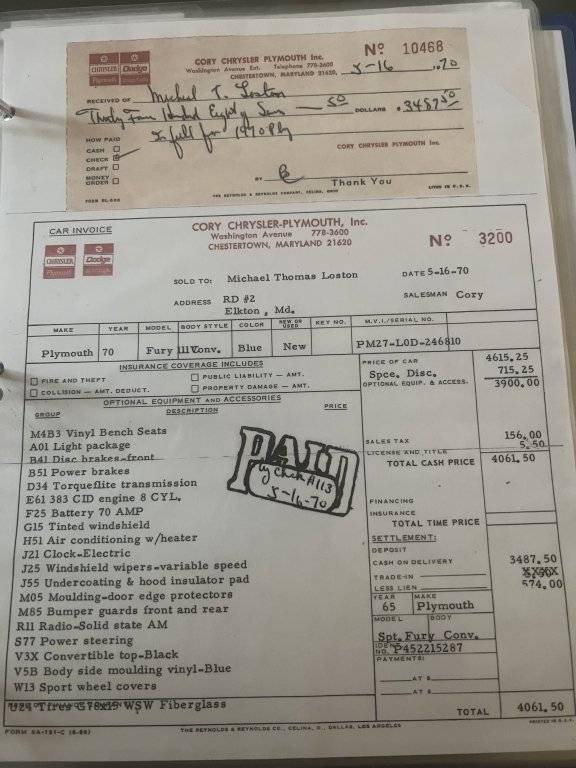 CHRYSLER Dodge
Plymouth
CORY CHRYSLER PLYMOUTH Inc.
Washington Avenue Ext. Telephone 778-3600
CHESTERTOWN, MARYLAND 21620,
Nº 10468
5-16 1970
RECEIVED OF Michael T. Loston
Thirty Four Hundred Eighty Seven 50 DOLLARS $ 3487 50
In full for 1970 Ply
HOW PAID
CASH
CHECK
DRAFT
MONEY ORDER
CORY CHRYSLER PLYMOUTH Inc.
BY
Thank You
THE REYNOLDS & REYNOLDS COMPANY, CELINA, OHIO
LITHO IN U.S.A.
CAR INVOICE
CHRYSLER Dodge
Plymouth
CORY CHRYSLER-PLYMOUTH, Inc.
Washington Avenue 778-3600
CHESTERTOWN, MARYLAND 21620
Nº 3200
SOLD TO: Michael Thomas Loston DATE 5-16-70
ADDRESS RD #2 SALESMAN Cory
Elkton, Md.
MAKE YEAR MODEL BODY STYLE COLOR NEW OR USED KEY NO. M.V.I./SERIAL NO.
Plymouth 70 Fury III Conv. Blue New PM27-L0D-246810
INSURANCE COVERAGE INCLUDES
FIRE AND THEFT PUBLIC LIABILITY - AMT.
COLLISION - AMT. DEDUCT. PROPERTY DAMAGE - AMT.
OPTIONAL EQUIPMENT AND ACCESSORIES
GROUP DESCRIPTION PRICE
M4B3 Vinyl Bench Seats
A01 Light package
B41 Disc brakes-front
B51 Power brakes
D34 Torqueflite transmission
E61 383 CID engine 8 CYL.
F25 Battery 70 AMP
G15 Tinted windshield
H51 Air conditioning w/heater
J21 Clock-Electric
J25 Windshield wipers-variable speed
J55 Undercoating & hood insulator pad
M05 Moulding-door edge protectors
M85 Bumper guards front and rear
R11 Radio-Solid state AM
S77 Power steering
V3X Convertible top-Black
V5B Body side moulding vinyl-Blue
W13 Sport wheel covers
U24 Tires G78x15 WSW Fiberglass
PAID
by check #113
5-16-70
PRICE OF CAR 4615.25
Spce. Disc. 715.25
OPTIONAL EQUIP. & ACCESS. 3900.00
SALES TAX 156.00
LICENSE AND TITLE 5.50
TOTAL CASH PRICE 4061.50
FINANCING
INSURANCE
TOTAL TIME PRICE
SETTLEMENT:
DEPOSIT
CASH ON DELIVERY 3487.50
TRADE-IN
LESS LIEN 574.00
YEAR MAKE
65 Plymouth
MODEL BODY
Spt. Fury Conv.
IDENT. NO. P452215287
PAYMENTS:
AT $
AT $
TOTAL 4061.50
FORM SA-121-C
THE REYNOLDS & REYNOLDS CO., CELINA, O., DALLAS, LOS ANGELES
PRINTED IN U.S.A.